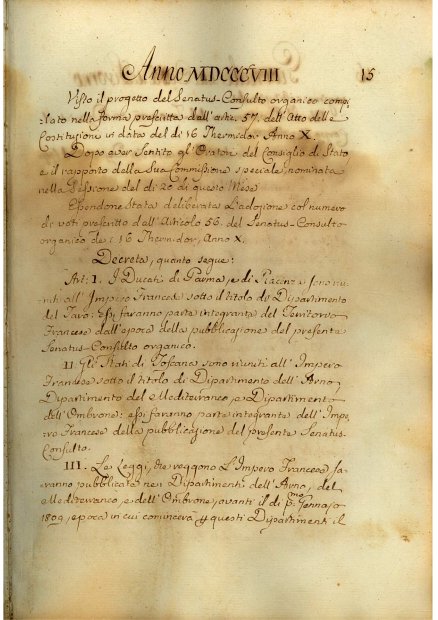 Anno MDCCCVIII 15
Visto il progetto del Senatus-Consulto organico compi=
lato nella forma prescritta dall'artic. 57. dell'Atto delle
Costituzione in data del di 16 Thermidor Anno X.
Dopo aver sentito gl'Oratori del Consiglio di Stato
e il rapporto della Sua Commissione speciale, nominata
nella Sessione del di 20 di questo Mese
Essendone stata deliberata l'adozione col numero
de voti prescritto dall'Articolo 56. del Senatus-Consulto
organico de' 16 Thermidor, Anno X.
Decreta, quanto segue:
Art: I. I Ducati di Parma, e di Piacenza sono riu=
niti all'Impero Francese sotto il titolo di Dipartimento
del Taro: essi faranno parte integrante del Territorio
Francese dall'epoca della pubblicazione del presente
Senatus-Consulto organico.
II. Gli Stati di Toscana sono riuniti all'Impero
Francese sotto il titolo di Dipartimento dell'Arno,
Dipartimento del Mediterraneo, e Dipartimento
dell'Ombrone: essi faranno parte integrante dell'Impe=
ro Francese della pubblicazione del presente Senatus-
Consulto.
III. Le Leggi, che reggono L'Impero Francese, sa=
ranno pubblicate nei Dipartimenti dell'Arno, del
Mediterraneo, e dell'Ombrone, avanti il di p.mo Gennajo
1809, epoca in cui comincerà p questi Dipartimenti il